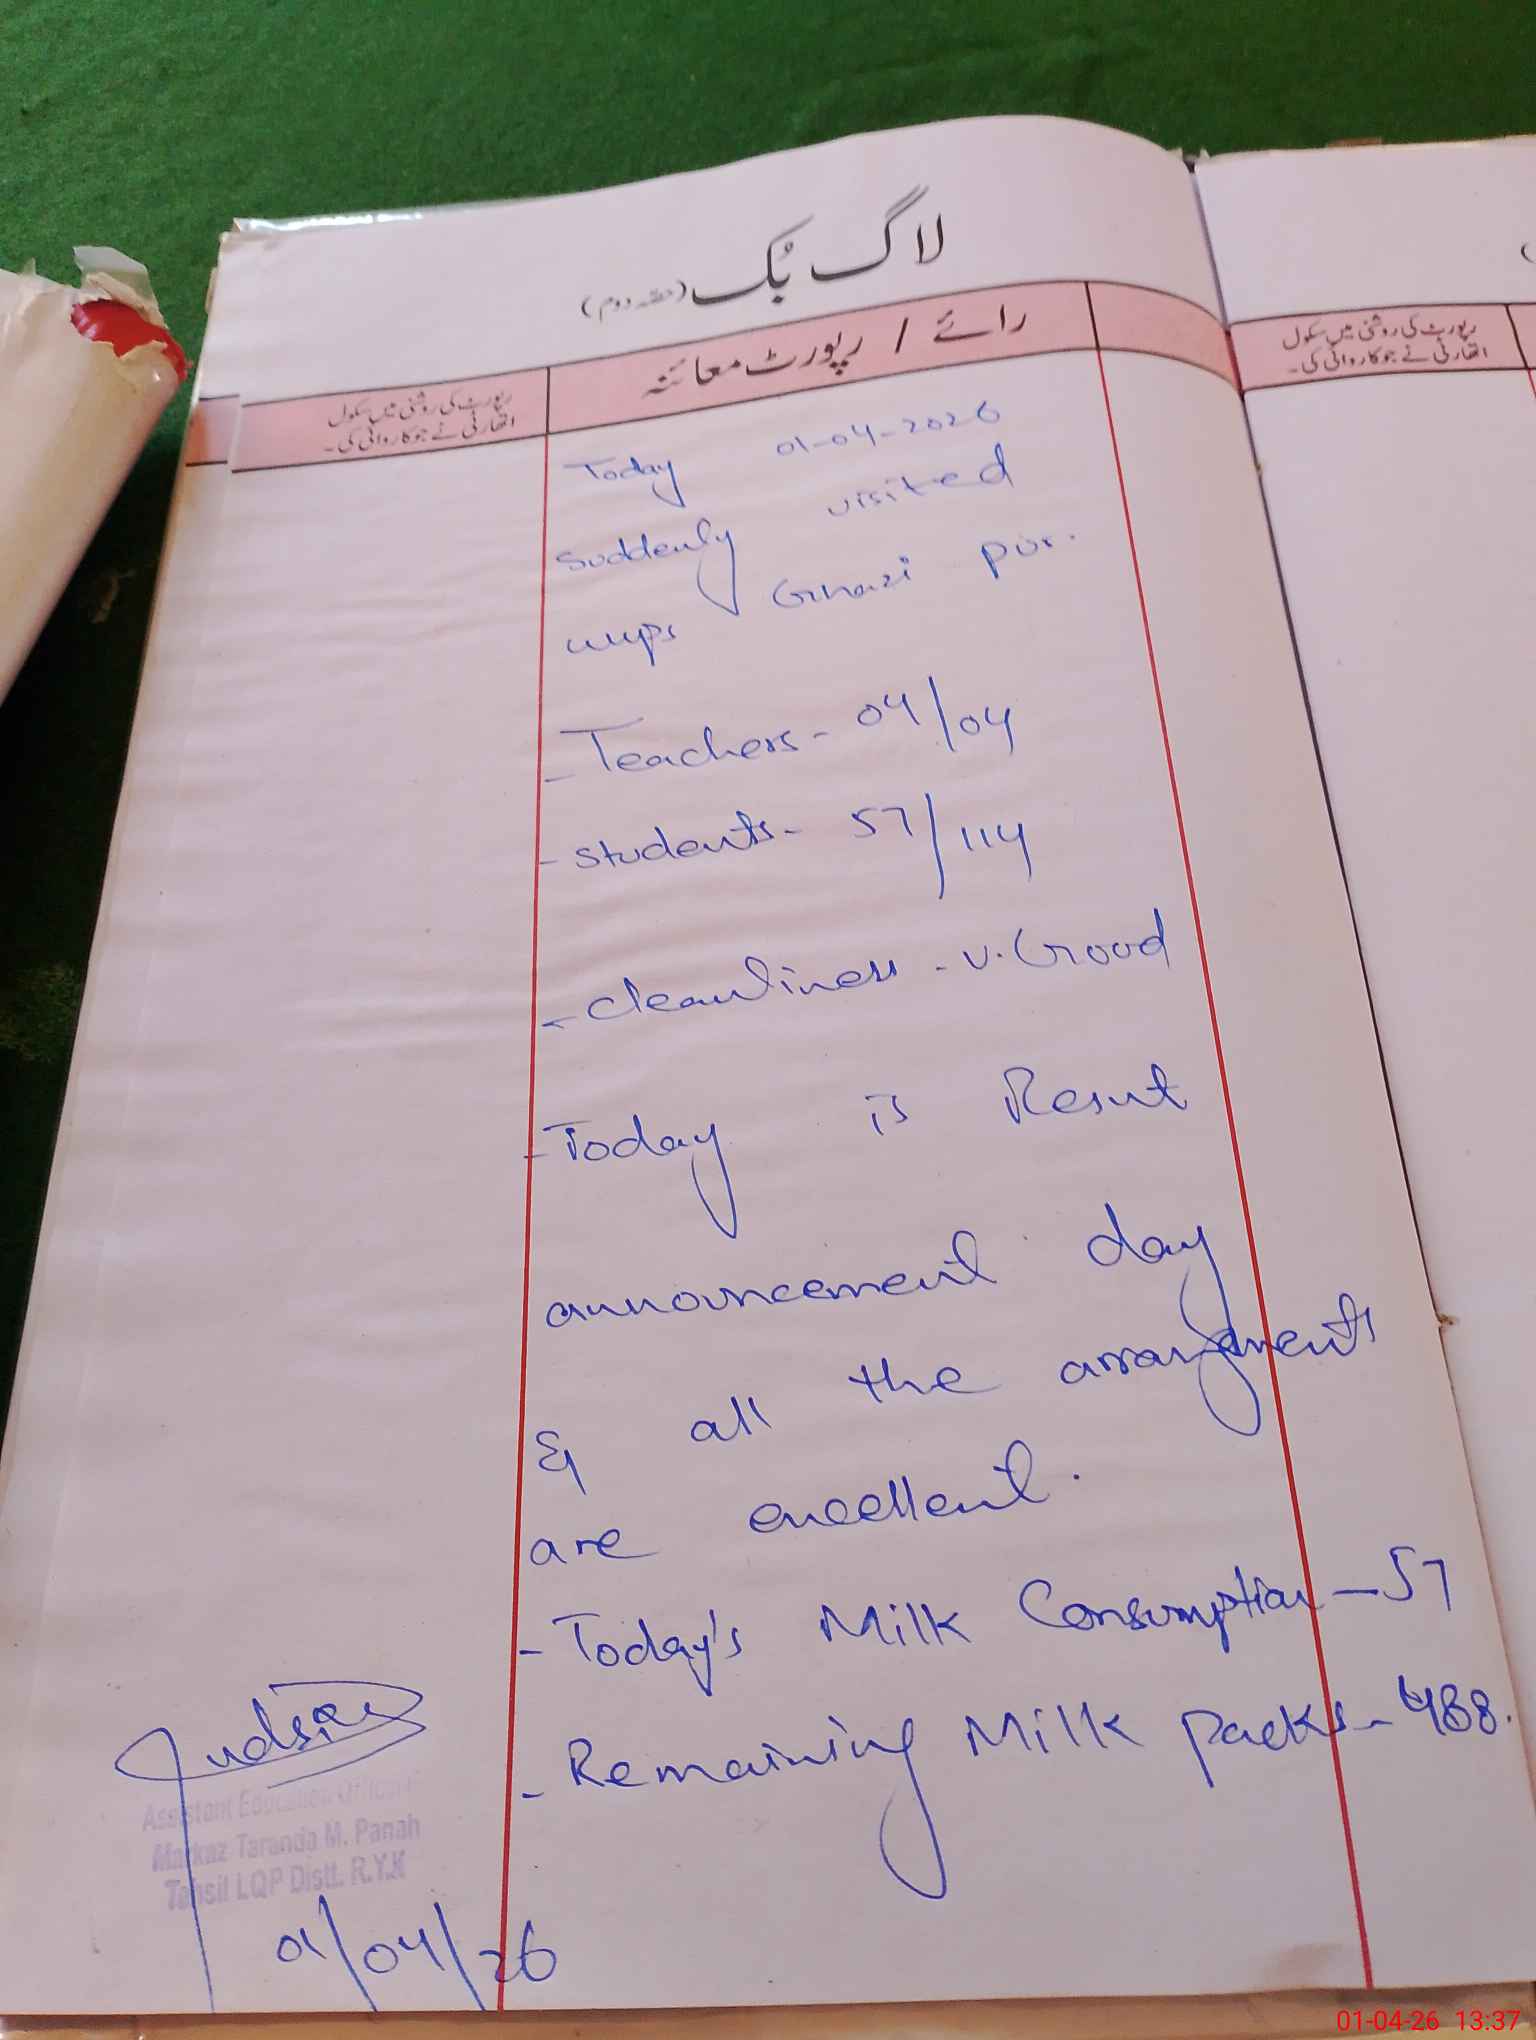 لاگ بُک (حصہ دوم)
رپورٹ کی روشنی میں سکول
اتھارٹی نے جو کاروائی کی۔
رائے / رپورٹ معائنہ
Today 01-04-2026
suddenly visited
MPS Ghazi pur.
- Teachers - 04/04
- students - 57/114
- cleanliness - v. Good
- Today is Result
announcement day
& all the arrangments
are excellent.
- Today's Milk Consumption - 57
- Remaining Milk packs - 488.
Assistant Education Officer
Markaz Taranda M. Panah
Tehsil LQP Distt. R.Y.K
01/04/26
رپورٹ کی روشنی میں سکول
اتھارٹی نے جو کاروائی کی۔
01-04-26 13:37